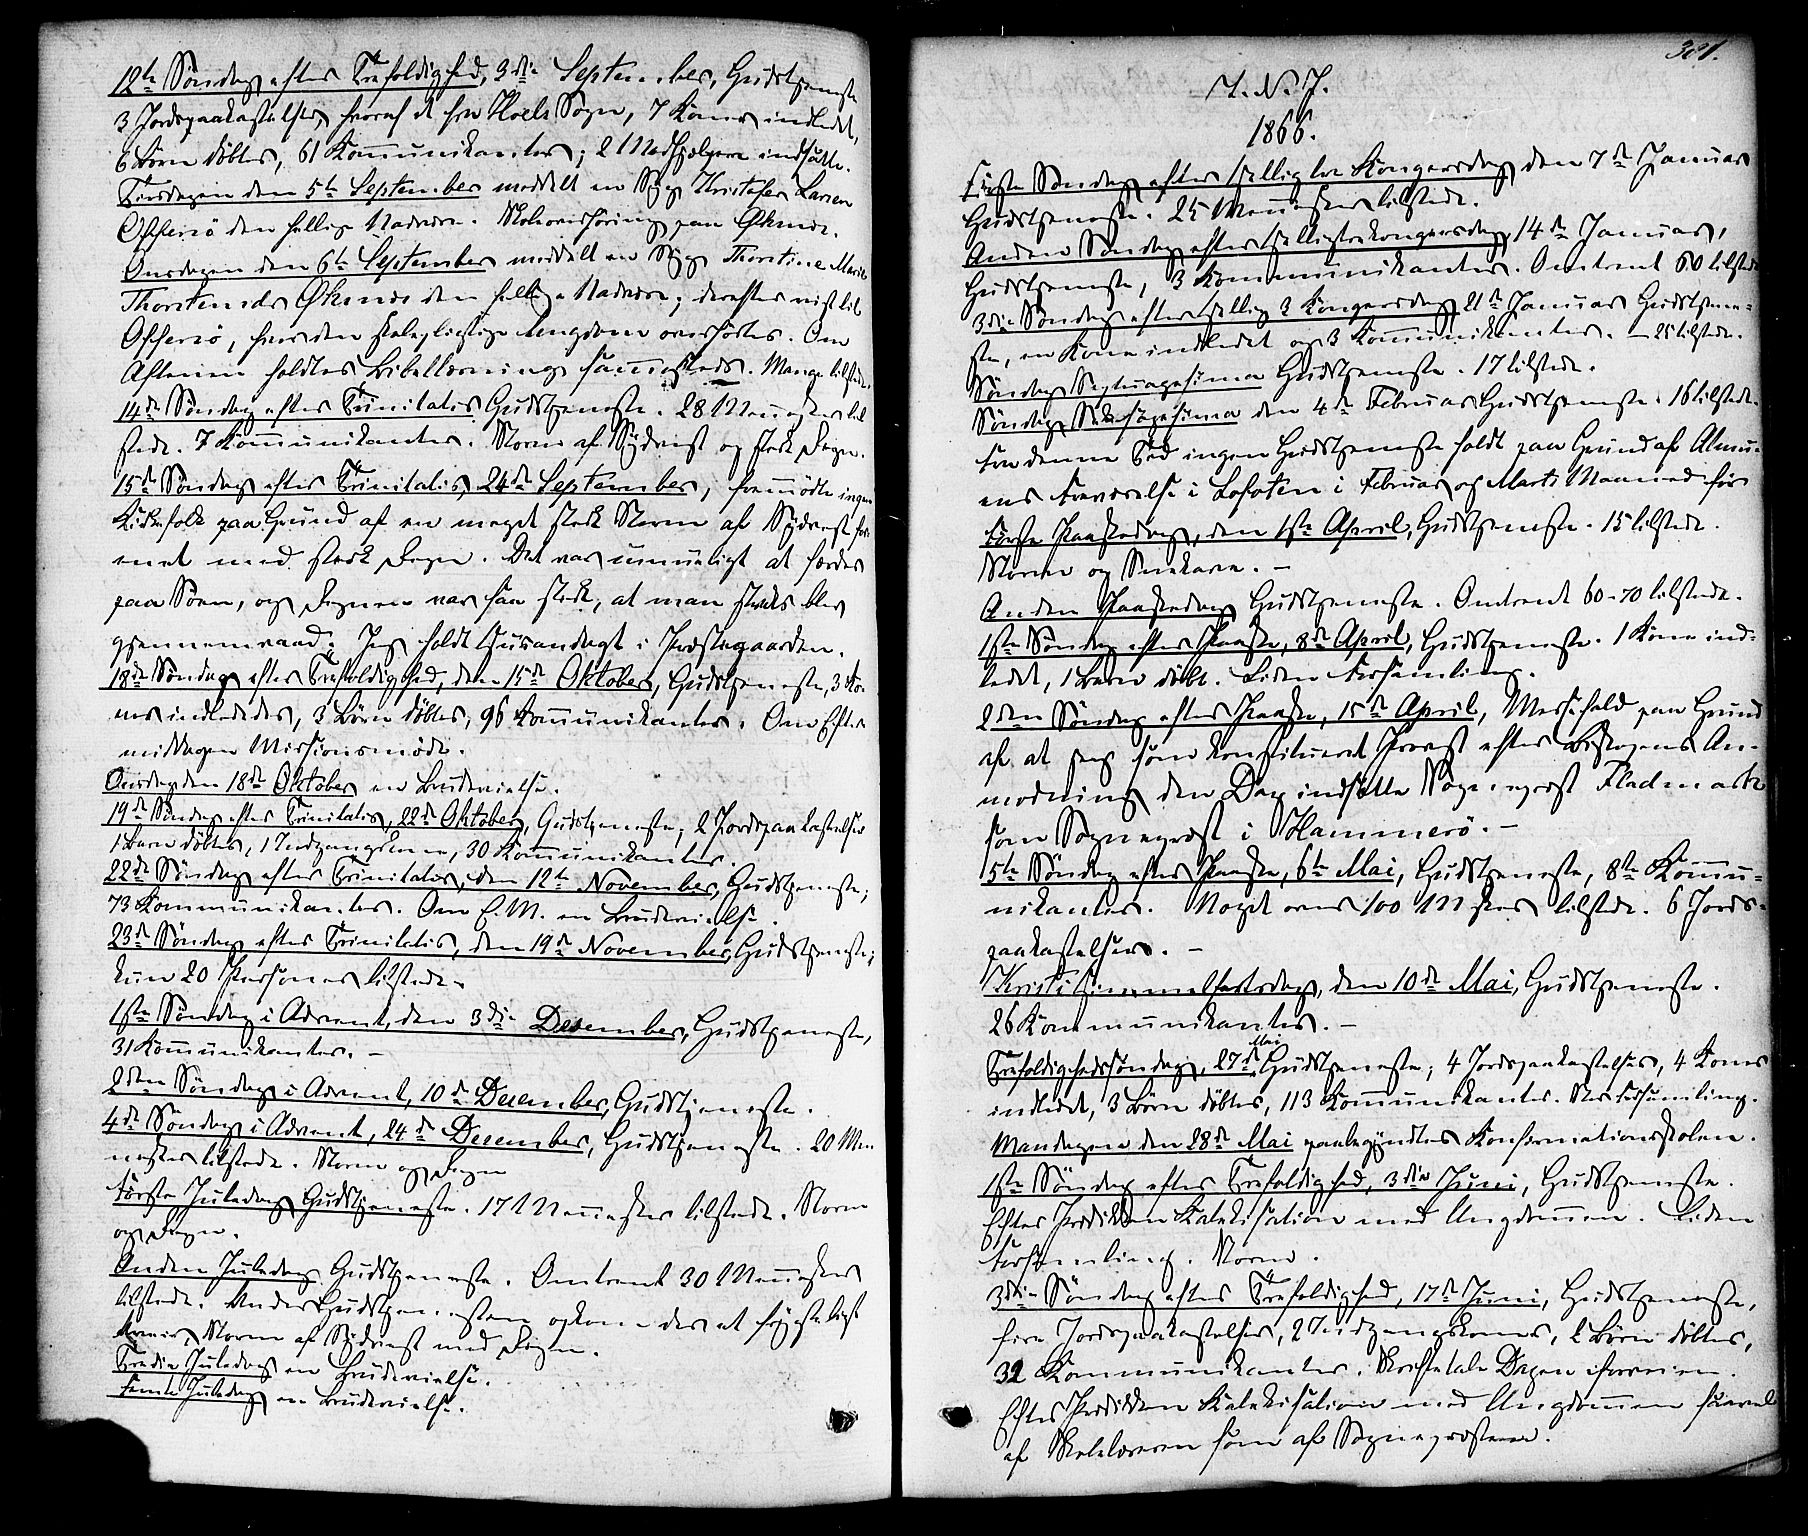 12te Søndag efter Trefoldighed, 3die September, Gudstjeneste
3 Jordpaakastelser, hvoraf et fra Sogn, 7 Koner indledet,
6 Børn døbtes, 61 Kommunikanter; 2 Medhjælpere indsatte.
Tirsdagen den 5te September meddelt en Syg Kristofer Larsen
Offersö den hellige Nadvere. Skoleovershøring paa Øksnes.
Onsdagen den 6te September meddelt en Syg Thorstine Marie
Thorstensdr Øksnes den hellige Nadvere; derefter reist til
Offersö, hvor den skolepligtige Ungdom overhørtes. Om
Aftenen holdtes Bibellæsning sammesteds. Mange tilstede.
14de Søndag efter Trinitatis Gudstjeneste. 28 Mennesker til
stede. 7 Kommunikanter. Storm af Sydvest og sterk Regn.
15de Søndag efter Trinitatis, 24de September, fremmødte ingen
Kirkefolk paa Grund af en meget sterk Storm af Sydvest for-
enet med sterk Regn. Det var umuligt at færdes
paa Søen, og Regnen var saa sterk, at man straks blev
gjennemvaad. Jeg holdt Husandagt i Præstegaarden.
18de Søndag efter Trefoldighed, den 15de Oktober, Gudstjeneste, 3 Ko-
ner indlededes, 3 Børn døbtes, 96 Kommunikanter. Om Efter-
middagen Missionsmøde.
Onsdag den 18de Oktober en Brudevielse.
19de Søndag efter Trinitatis, 22de Oktober, Gudstjeneste, 2 Jordpaakastelser
1 Barn døbtes, 1 Indgangskone, 30 Kommunikanter.
22de Søndag efter Trinitatis, den 12te November, Gudstjeneste;
73 Kommunikanter. Om E. M. en Brudevielse.
23de Søndag efter Trinitatis, den 19de November, Gudstjeneste;
kun 20 Personer tilstede.
1ste Søndag i Advent, den 3die Desember, Gudstjeneste,
31 Kommunikanter. –
2den Søndag i Advent, 10de Desember, Gudstjeneste.
4de Søndag i Advent, 24de Desember, Gudstjeneste. 20 Men
nesker tilstede. Storm og Regn
Første Juledag Gudstjeneste. 17 Mennesker tilstede. Storm
og Regn.
Anden Juledag Gudstjeneste. Omtrent 30 Mennesker
tilstede. Under Gudstjenesten opkom der et
Storm af Sydvest med Regn.
Tredie Juledag en Brudevielse.
Femte Juledag en Brudevielse.
321.
I. N. J.
1866.
Første Søndag efter Hellig tre Kongersdag den 7de Januar
Gudstjeneste. 25 Mennesker tilstede.
Anden Søndag efter Helligtrekongersdag, 14de Januar,
Gudstjeneste, 3 Kommunikanter. Omtrent 60 tilstede
3die Søndag efter Hellig 3 Kongersdag 21de Januar Gudstjene-
ste, en Kone indledet og 3 Kommunikanter. – 25 tilstede.
Søndag Septuagesima Gudstjeneste. 17 tilstede.
Søndag Seksagesima den 4de Februar Gudstjeneste. 16 tilstede.
Fra denne Tid ingen Gudstjeneste holdt paa Grund af Almu-
ens Fraværelse i Lofoten i Februar og Marts Maaned før
Første Paaskedag, den 1ste April, Gudstjeneste. 15 tilstede.
Storm og Snekave. –
Anden Paaskedag Gudstjeneste. Omtrent 60-70 tilstede.
1ste Søndag efter Paaske, 8de April, Gudstjeneste. 1 Kone ind-
ledet, 1 Barn døbt. Liden Forsamling.
2den Søndag efter Paaske, 15de April, Messefald paa Grund
af at jeg som konstitueret Provst efter Biskopens An-
modning den Dag indsatte Sogneprest Fladmark
som Sogneprest i Hammerö. –
5te Søndag efter Paaske, 6te Mai, Gudstjeneste, 8te Kommu-
nikanter. Noget over 100 Msker tilstede. 6 Jords-
paakastelser. –
Kristi himmelfartsdag, den 10de Mai, Gudstjeneste.
26 Kommunikanter. –
Trefoldighedssøndag, 27de Mai Gudstjeneste; 4 Jordpaakastelser, 4 Koner
indledet, 3 Børn døbtes, 113 Kommunikanter. Stor Forsamling.
Mandagen den 28de Mai paabegyndtes Konfirmationsskolen.
1ste Søndag efter Trefoldighed, 3die Juni, Gudstjeneste.
Efter Prædiken Katekisation med Ungdommen. Liden
Forsamling. Storm.
3die Søndag efter Trefoldighed, 17de Juni, Gudstjeneste,
fire Jordpaakastelser, 2 Indgangskoner, 2 Børn døbtes,
32 Kommunikanter. Skriftetale Dagen iforveien.
Efter Prædiken Katekisation med Ungdommen saavel
af Skolelæreren som af Sognepræsten.